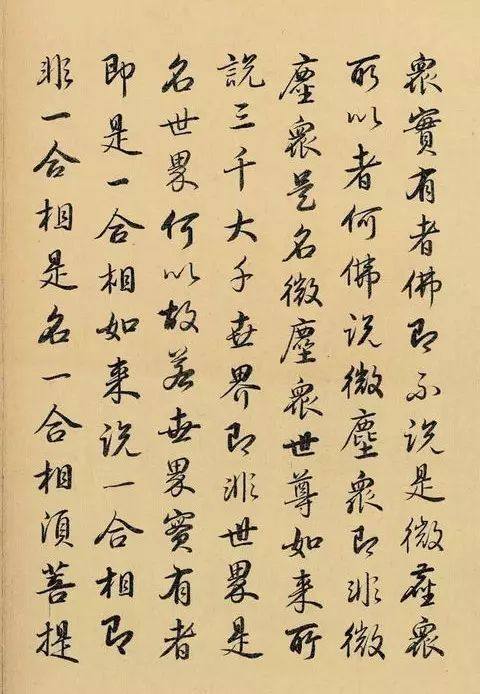 眾實有者佛即不說是微塵眾
所以者何佛說微塵眾即非微
塵眾是名微塵眾世尊如來所
說三千大千世界即非世界是
名世界何以故若世界實有者
即是一合相如來說一合相即
非一合相是名一合相須菩提